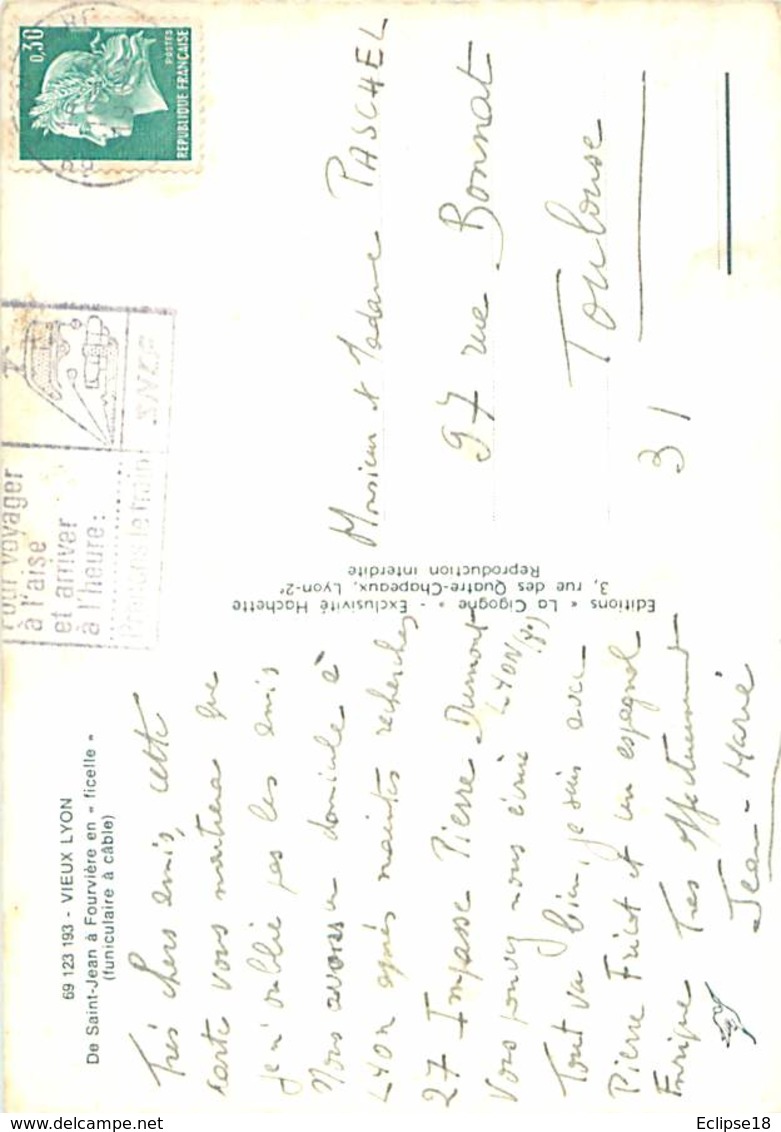 69 123 193 - VIEUX LYON
De Saint-Jean à Fourvière en « ficelle »
(funiculaire à câble)
Très chers amis, cette
carte vous montrera que
je n'oublie pas les amis
Nous avons un domicile à
LYON après maintes recherches
27 Impasse Pierre Dumont
LYON
Vous pouvez nous écrire
Tout va bien, je suis avec
Pierre Fricot et un espagnol
Enrique Très affectueusement
Jean-Marie
Editions « La Cigogne » - Exclusivité Hachette
3, rue des Quatre-Chapeaux, Lyon-2e
Reproduction interdite
Pour voyager
à l'aise
et arriver
à l'heure :
Prenons le train
SNCF
0,30
POSTES
REPUBLIQUE FRANÇAISE
Monsieur et Madame PASCHEL
97 rue Bonnat
Toulouse
31
Eclipse18